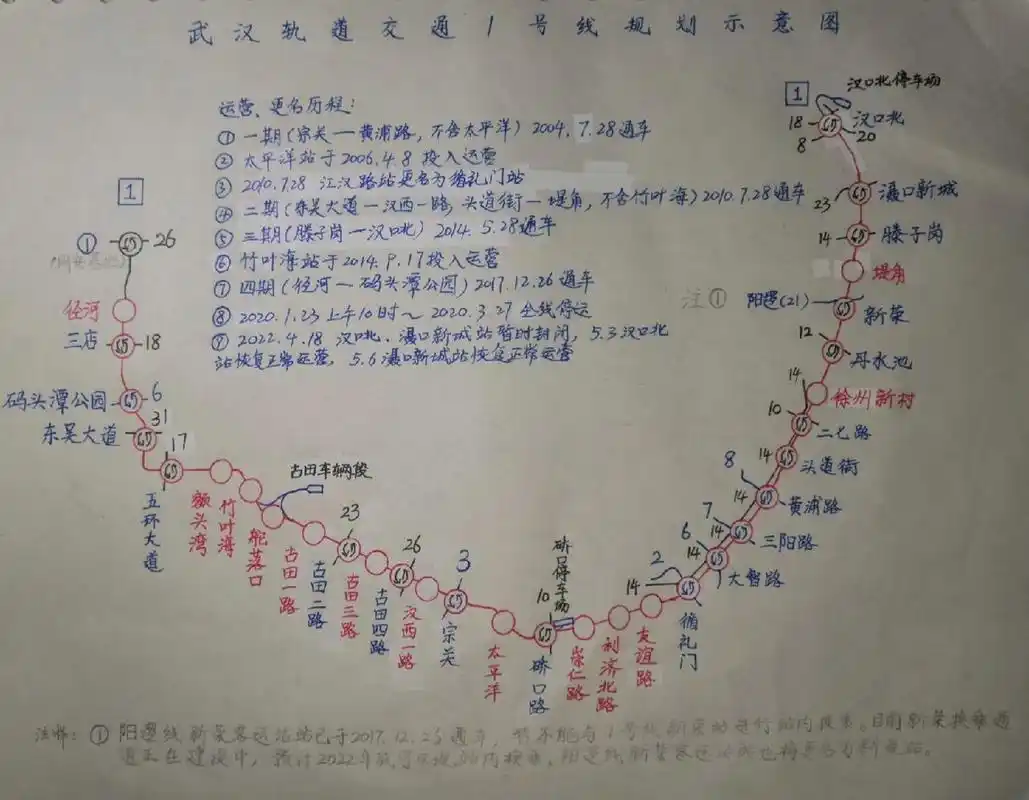 武汉轨道交通1号线规划示意图
运营、更名历程:
① 一期(宗关—黄浦路,不含太平洋) 2004.7.28通车
② 太平洋站于2006.4.8 投入运营
③ 2010.7.28 江汉路站更名为循礼门站
④ 二期(东吴大道—汉西一路, 头道街—堤角, 不含竹叶海) 2010.7.28通车
⑤ 三期(滕子岗—汉口北) 2014.5.28通车
⑥ 竹叶海站于2014.9.17投入运营
⑦ 四期(径河—码头潭公园) 2017.12.26通车
⑧ 2020.1.23上午10时~2020.3.27 全线停运
⑨ 2022.4.18 汉口北、滠口新城站暂时封闭, 5.3汉口北
站恢复正常运营, 5.6滠口新城站恢复正常运营
1
① 26
径河
三店 18
码头潭公园 6
31
东吴大道
17
五环大道
额头湾
竹叶海
舵落口
古田车辆段
古田一路
古田二路
23
古田三路
古田四路
26
汉西一路
3
宗关
太平洋
10
硚口停车场
硚口路
崇仁路
利济北路
友谊路
2
14
循礼门
6
14
大智路
7
14
三阳路
8
14
黄浦路
14
头道街
10
二七路
14
徐州新村
12
丹水池
注①
阳逻(21)
新荣
堤角
14
滕子岗
23
滠口新城
1
汉口北停车场
18
8
20
汉口北
注释: ① 阳逻线新荣客运站站已于2017.12.26通车,